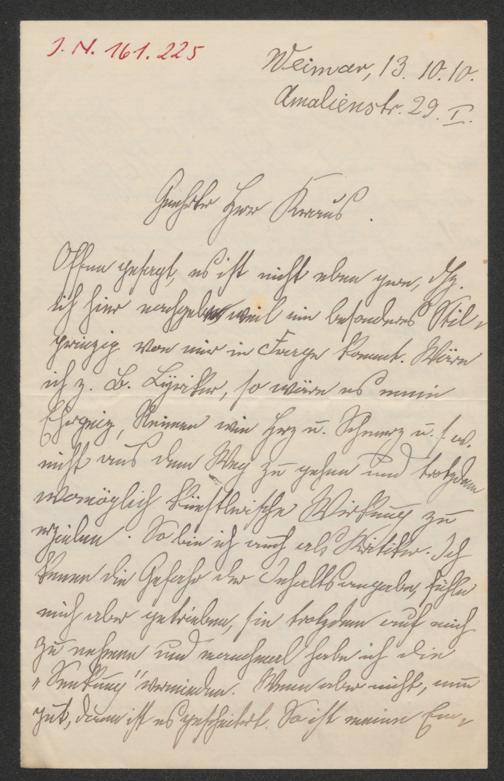 J. N. 161.225
Weimar, 13. 10. 10.
Amalienstr. 29. I.
Geehrter Herr Kraus.
Offen gesagt, es ist nicht eben gern, dß
ich hier nachgebe, weil ein besonderes Stil-
prinzip von mir in Frage kommt. Wäre
ich z. B. Lyriker, so wäre es mein
Ehrgeiz, Reimen wie Herz u. Schmerz u.s.w.
nicht aus dem Weg zu gehen und trotzdem
womöglich künstlerische Wirkung zu
erzielen. So bin ich auch als Kritiker. Ich
kenne die Gefahr der Inhaltsangabe, fühle
mich aber getrieben, sie trotzdem auf mich
zu nehmen und manchmal habe ich die
„Senkung" vermieden. Wenn aber nicht, nun
gut, dann ist es gescheitert. So ist meine Em-